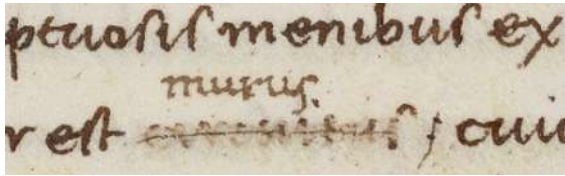 ptuosis menibus ex
murus.
r est ; cuiu